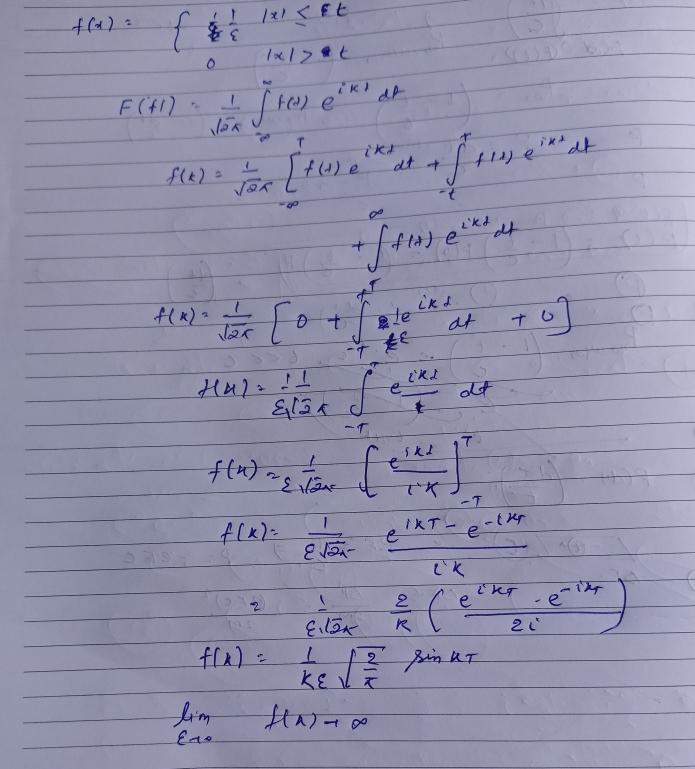 f(x) = { 1/ε |x| ≤ t
0 |x| > t
F(f) = 1/√2π ∫_{-∞}^{∞} f(t) e^{ikt} dt
f(k) = 1/√2π [ ∫_{-∞}^{T} f(t) e^{ikt} dt + ∫_{-t}^{T} f(t) e^{ikt} dt
+ ∫_{T}^{∞} f(t) e^{ikt} dt
f(k) = 1/√2π [ 0 + ∫_{-T}^{T} 1/ε e^{ikt} dt + 0 ]
f(k) = 1/ε√2π ∫_{-T}^{T} e^{ikt} dt
f(k) = 1/ε√2π [ e^{ikt}/ik ]_{-T}^{T}
f(k) = 1/ε√2π (e^{ikT} - e^{-ikT})/ik
= 1/ε√2π 2/k ( (e^{ikT} - e^{-ikT})/2i )
f(k) = 1/kε √(2/π) sin kT
lim_{ε→0} f(k) → ∞